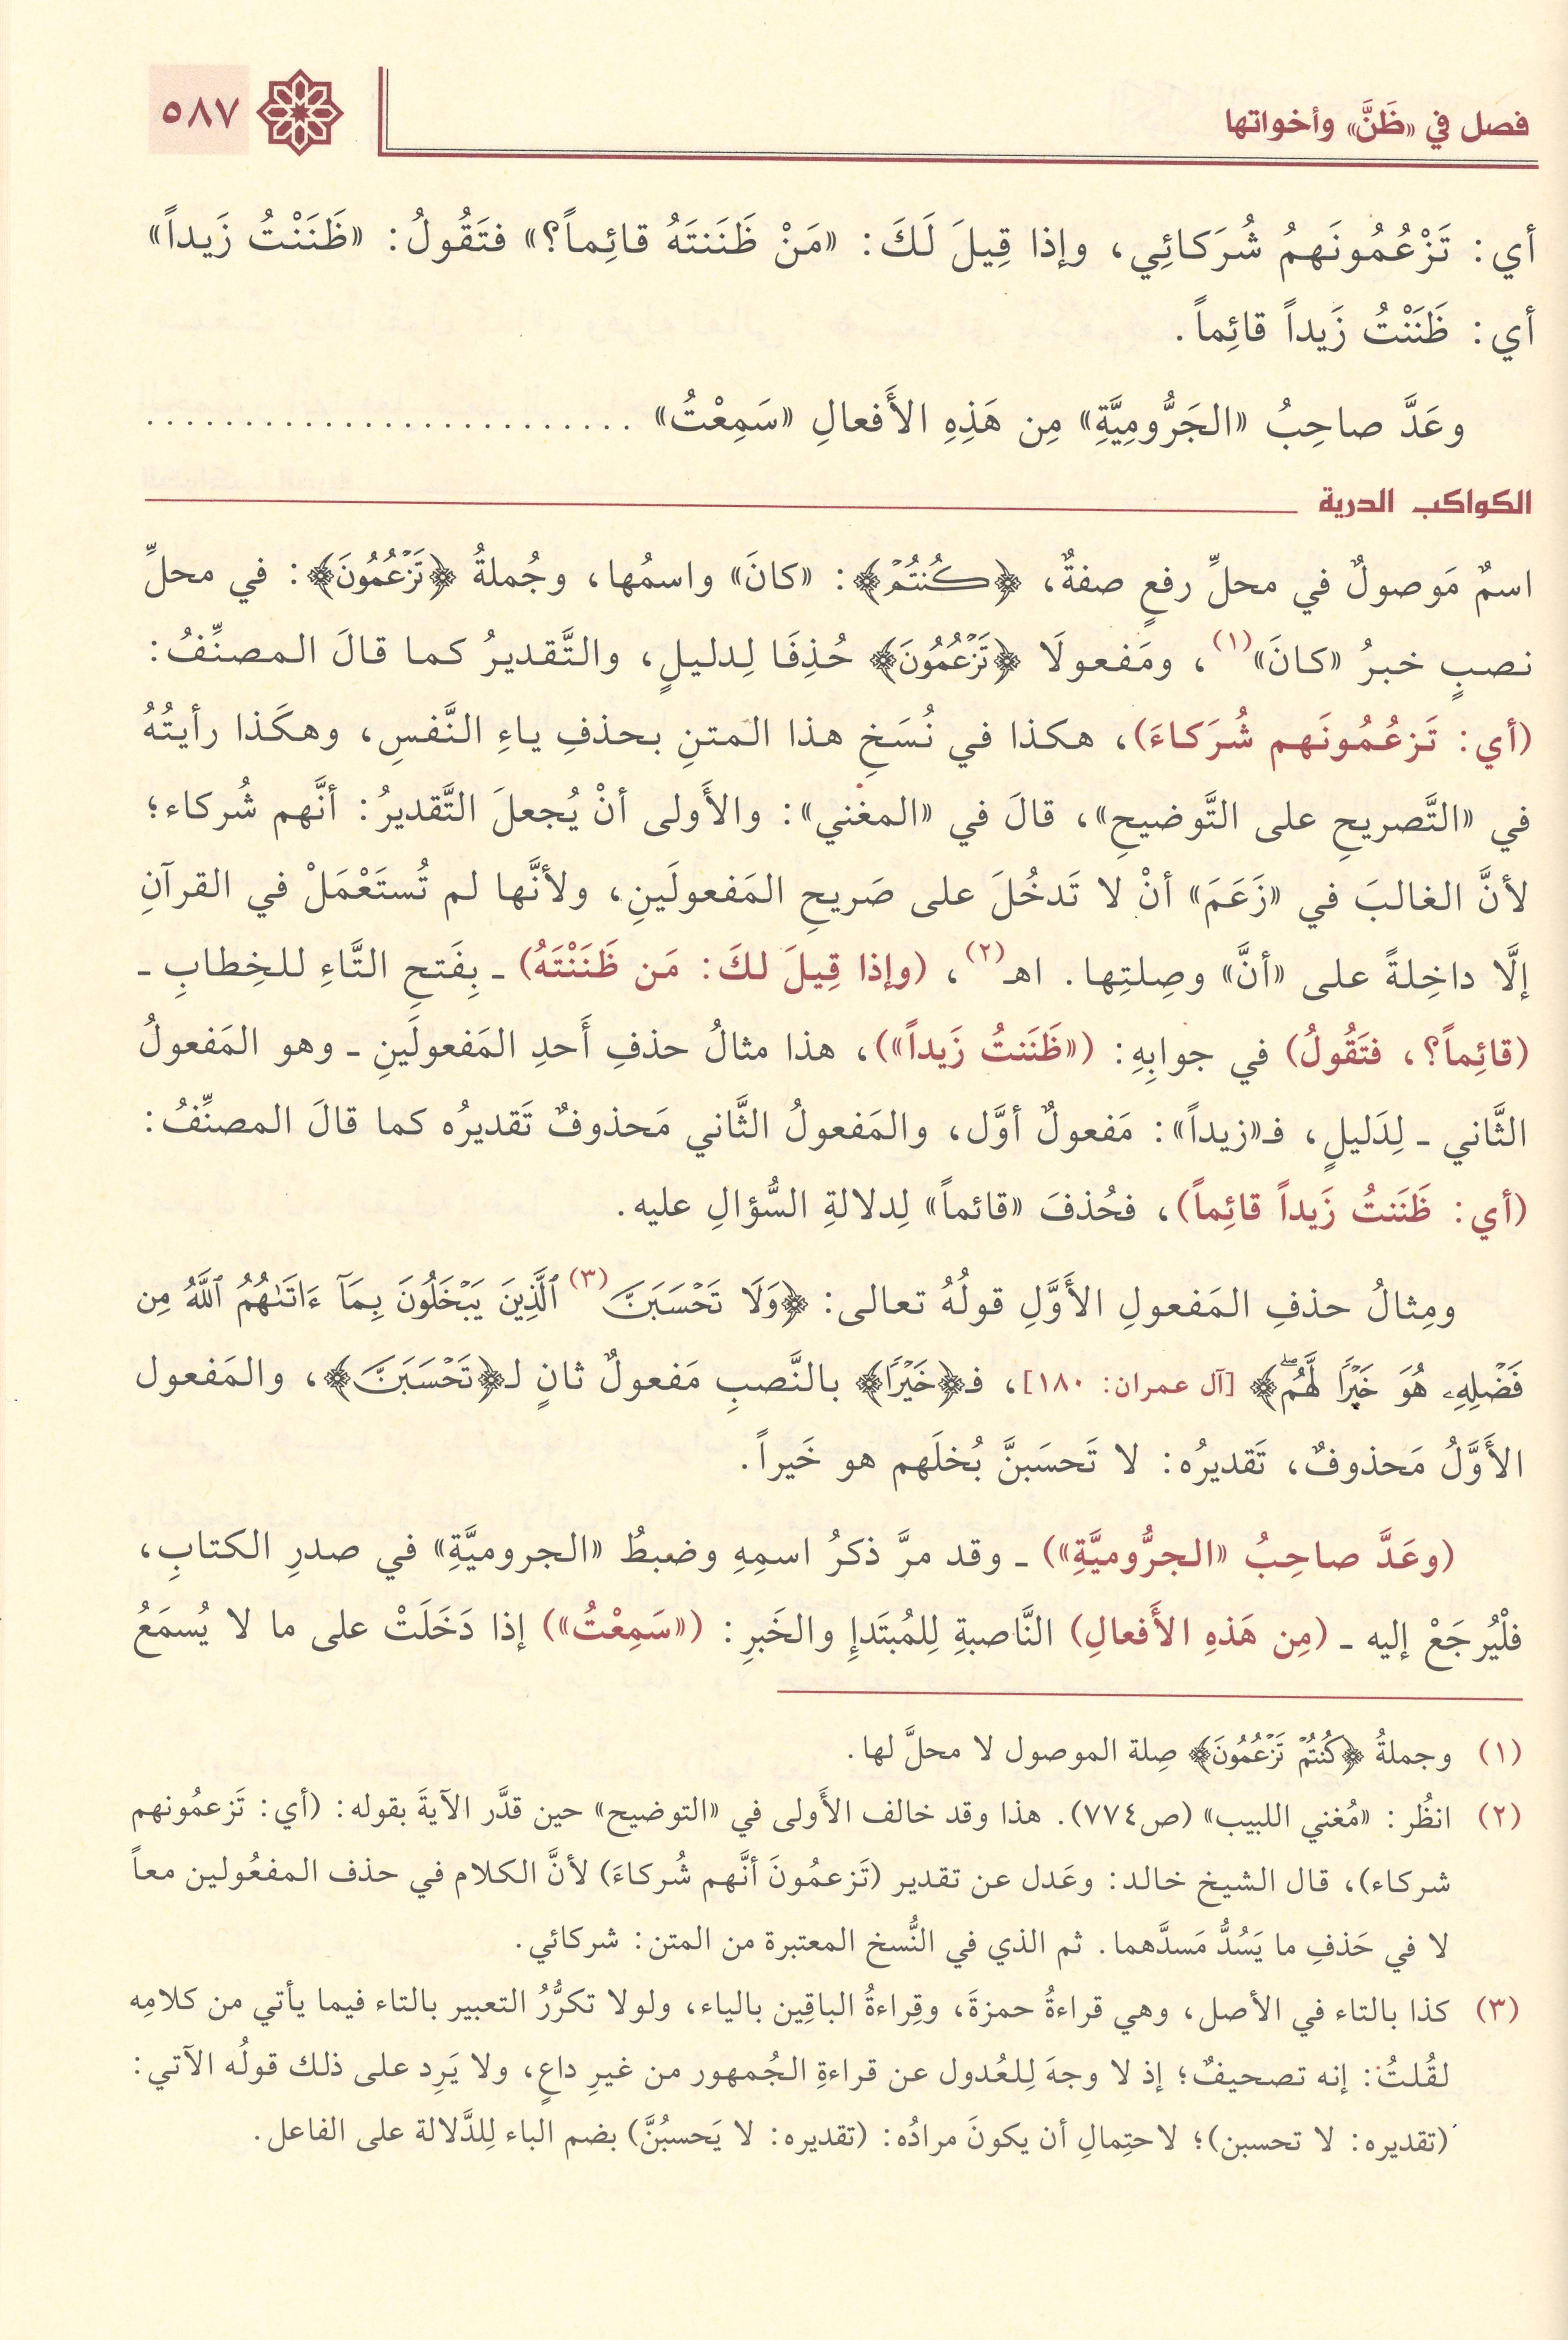 فصل في «ظَنَّ» وأخواتها
٥٨٧
أي: تَزْعُمُونَهمُ شُرَكائِي، وإذا قِيلَ لَكَ: «مَنْ ظَنَنتَهُ قائِماً؟» فتَقُولُ: «ظَنَنْتُ زَيداً»
أي: ظَنَنْتُ زَيداً قائِماً.
وعَدَّ صاحِبُ «الجَرُّومِيَّةِ» مِن هَذِهِ الأَفعالِ «سَمِعْتُ» ..........................
الكواكب الدرية
اسمٌ مَوصولٌ في محلِّ رفعٍ صفةٌ، ﴿كُنتُمْ﴾: «كانَ» واسمُها، وجُملةُ ﴿تَزْعُمُونَ﴾: في محلِّ
نصبٍ خبرُ «كانَ»(١)، ومَفعولَا ﴿تَزْعُمُونَ﴾ حُذِفَا لِدليلٍ، والتَّقديرُ كما قالَ المصنِّفُ:
(أي: تَزعُمُونَهم شُرَكاءَ)، هكذا في نُسَخِ هذا المتنِ بحذفِ ياءِ النَّفسِ، وهكَذا رأيتُهُ
في «التَّصريحِ على التَّوضيحِ»، قالَ في «المغني»: والأَولى أنْ يُجعلَ التَّقديرُ: أنَّهم شُركاء؛
لأنَّ الغالبَ في «زَعَمَ» أنْ لا تَدخُلَ على صَريحِ المَفعولَينِ، ولأنَّها لم تُستَعْمَلْ في القرآنِ
إلَّا داخِلةً على «أنَّ» وصِلتِها. اهـ(٢)، (وإذا قِيلَ لكَ: مَن ظَنَنْتَهُ) ـ بِفَتحِ التَّاءِ للخِطابِ ـ
(قائِماً؟، فتَقُولُ) في جوابِهِ: («ظَنَنتُ زَيداً»)، هذا مثالُ حذفِ أَحدِ المَفعولَينِ ـ وهو المَفعولُ
الثَّاني ـ لِدَليلٍ، فـ«زيداً»: مَفعولٌ أوَّل، والمَفعولُ الثَّاني مَحذوفٌ تَقديرُه كما قالَ المصنِّفُ:
(أي: ظَنَنتُ زَيداً قائِماً)، فحُذفَ «قائماً» لِدلالةِ السُّؤالِ عليه.
ومِثالُ حذفِ المَفعولِ الأَوَّلِ قولُهُ تعالى: ﴿وَلَا تَحْسَبَنَّ(٣) ٱلَّذِينَ يَبْخَلُونَ بِمَآ ءَاتَىٰهُمُ ٱللَّهُ مِن
فَضْلِهِۦ هُوَ خَيْرًا لَّهُمۖ﴾ [آل عمران: ١٨٠]، فـ﴿خَيْرًا﴾ بالنَّصبِ مَفعولٌ ثانٍ لـ﴿تَحْسَبَنَّ﴾، والمَفعول
الأَوَّلُ مَحذوفٌ، تَقديرُه: لا تَحسَبنَّ بُخلَهم هو خَيراً.
(وعَدَّ صاحِبُ «الجرُّوميَّةِ») ـ وقد مرَّ ذكرُ اسمِهِ وضبطُ «الجروميَّةِ» في صدرِ الكتابِ،
فلْيُرجَعْ إليه ـ (مِن هَذهِ الأَفعالِ) النَّاصبةِ لِلمُبتَدإِ والخَبرِ: («سَمِعْتُ») إذا دَخَلَتْ على ما لا يُسمَعُ
(١) وجملةُ ﴿كُنتُمْ تَزْعُمُونَ﴾ صِلة الموصول لا محلَّ لها.
(٢) انظُر: «مُغني اللبيب» (ص٧٧٤). هذا وقد خالف الأَولى في «التوضيح» حين قدَّر الآيةَ بقوله: (أي: تَزعمُونهم
شركاء)، قال الشيخ خالد: وعَدل عن تقدير (تَزعمُونَ أنَّهم شُركاءَ) لأنَّ الكلام في حذف المفعُولين معاً
لا في حَذفِ ما يَسُدُّ مَسدَّهما. ثم الذي في النُّسخ المعتبرة من المتن: شركائي.
(٣) كذا بالتاء في الأصل، وهي قراءةُ حمزةَ، وقِراءةُ الباقِين بالياء، ولولا تكرُّرُ التعبير بالتاء فيما يأتي من كلامِه
لقُلتُ: إنه تصحيفٌ؛ إذ لا وجهَ لِلعُدول عن قراءةِ الجُمهور من غيرِ داعٍ، ولا يَرِد على ذلك قولُه الآتي:
(تقديره: لا تحسبن)؛ لاحتِمالِ أن يكونَ مرادُه: (تقديره: لا يَحسبُنَّ) بضم الباء لِلدَّلالة على الفاعل.